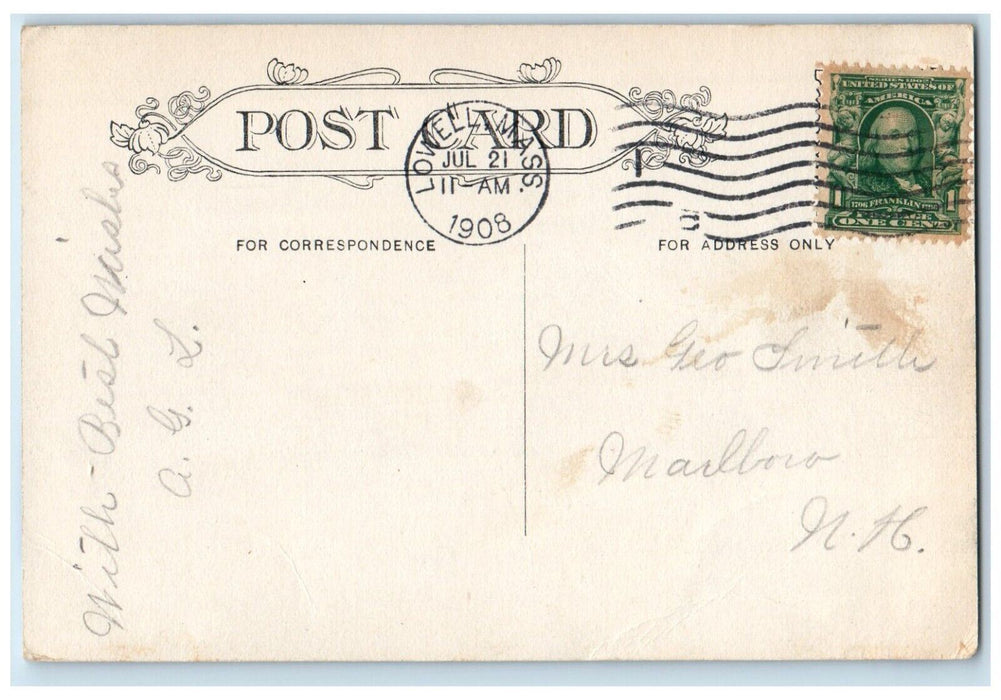 POST CARD
LOWELL, MASS.
JUL 21
11 AM
1908
SERIES 1902
UNITED STATES OF
AMERICA
1706 FRANKLIN 1790
1 1
POSTAGE
ONE CENT
FOR CORRESPONDENCE
FOR ADDRESS ONLY
With - Best Wishes
A. G. L.
Mrs Geo Smith
Marlboro
N. H.